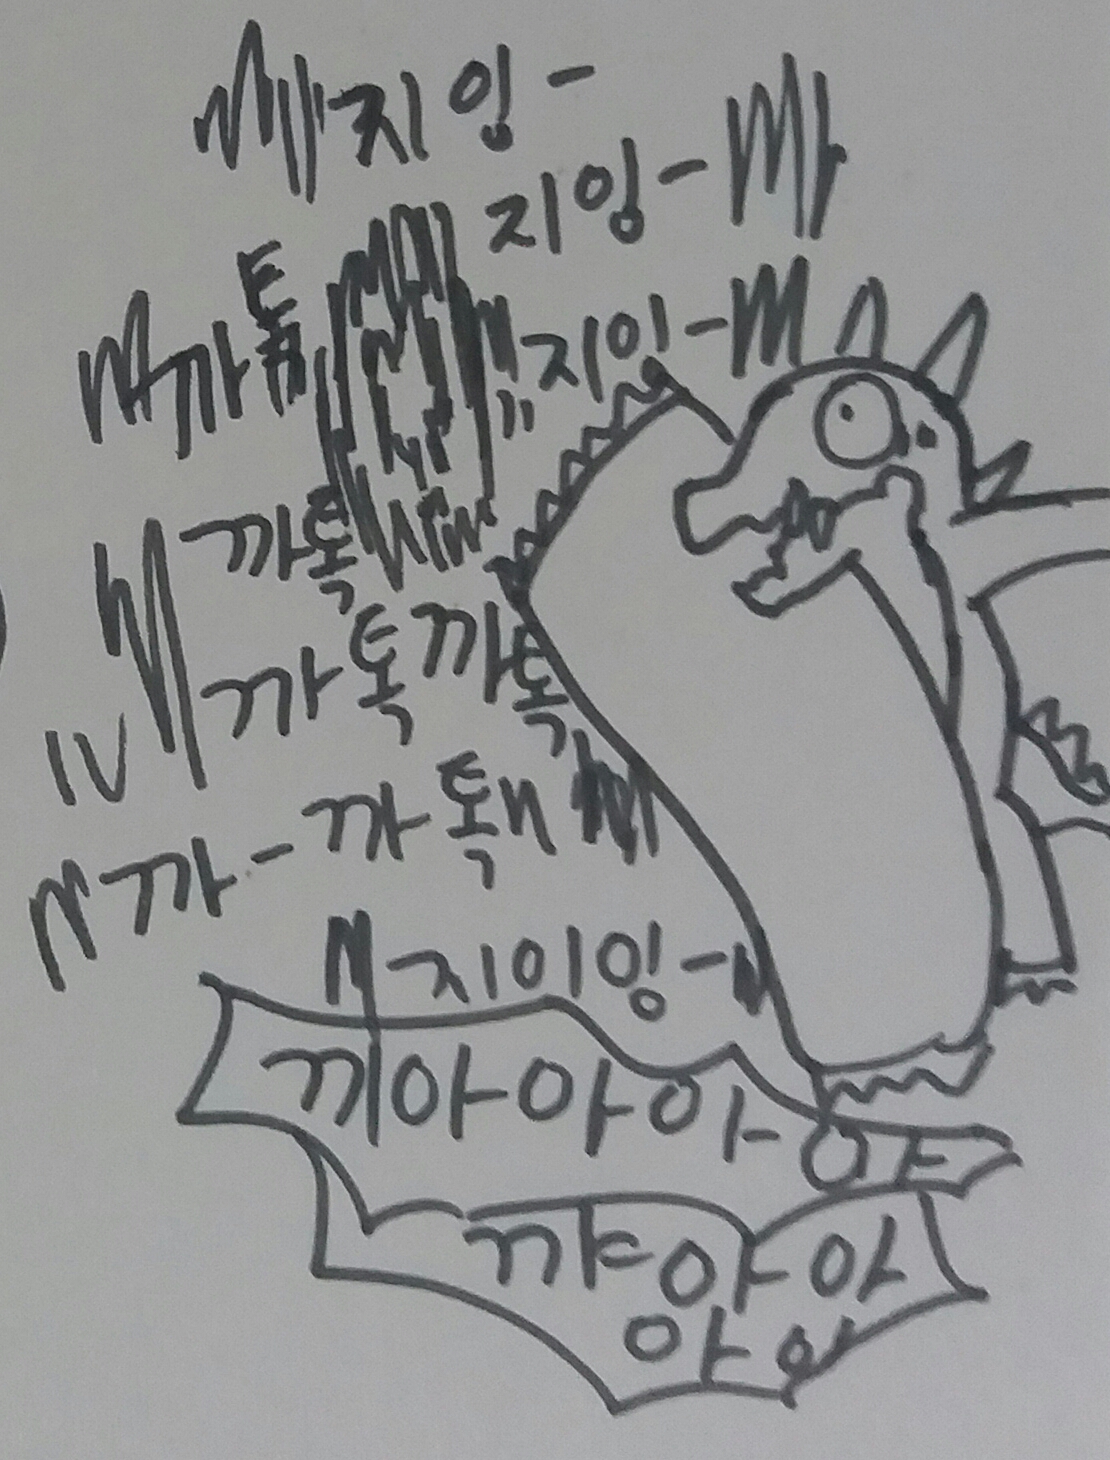 지잉-
지잉-
까톡
지잉-
까톡
까톡 까톡
까- 까톡
지이잉-
끼아아아아
꺄아아
아아